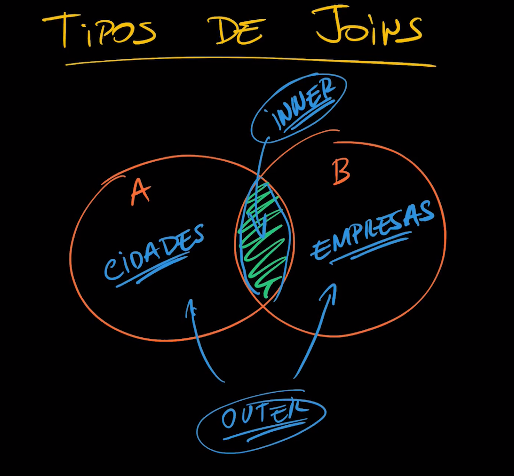 TIPOS DE JOINS
INNER
A
B
CIDADES
EMPRESAS
OUTER